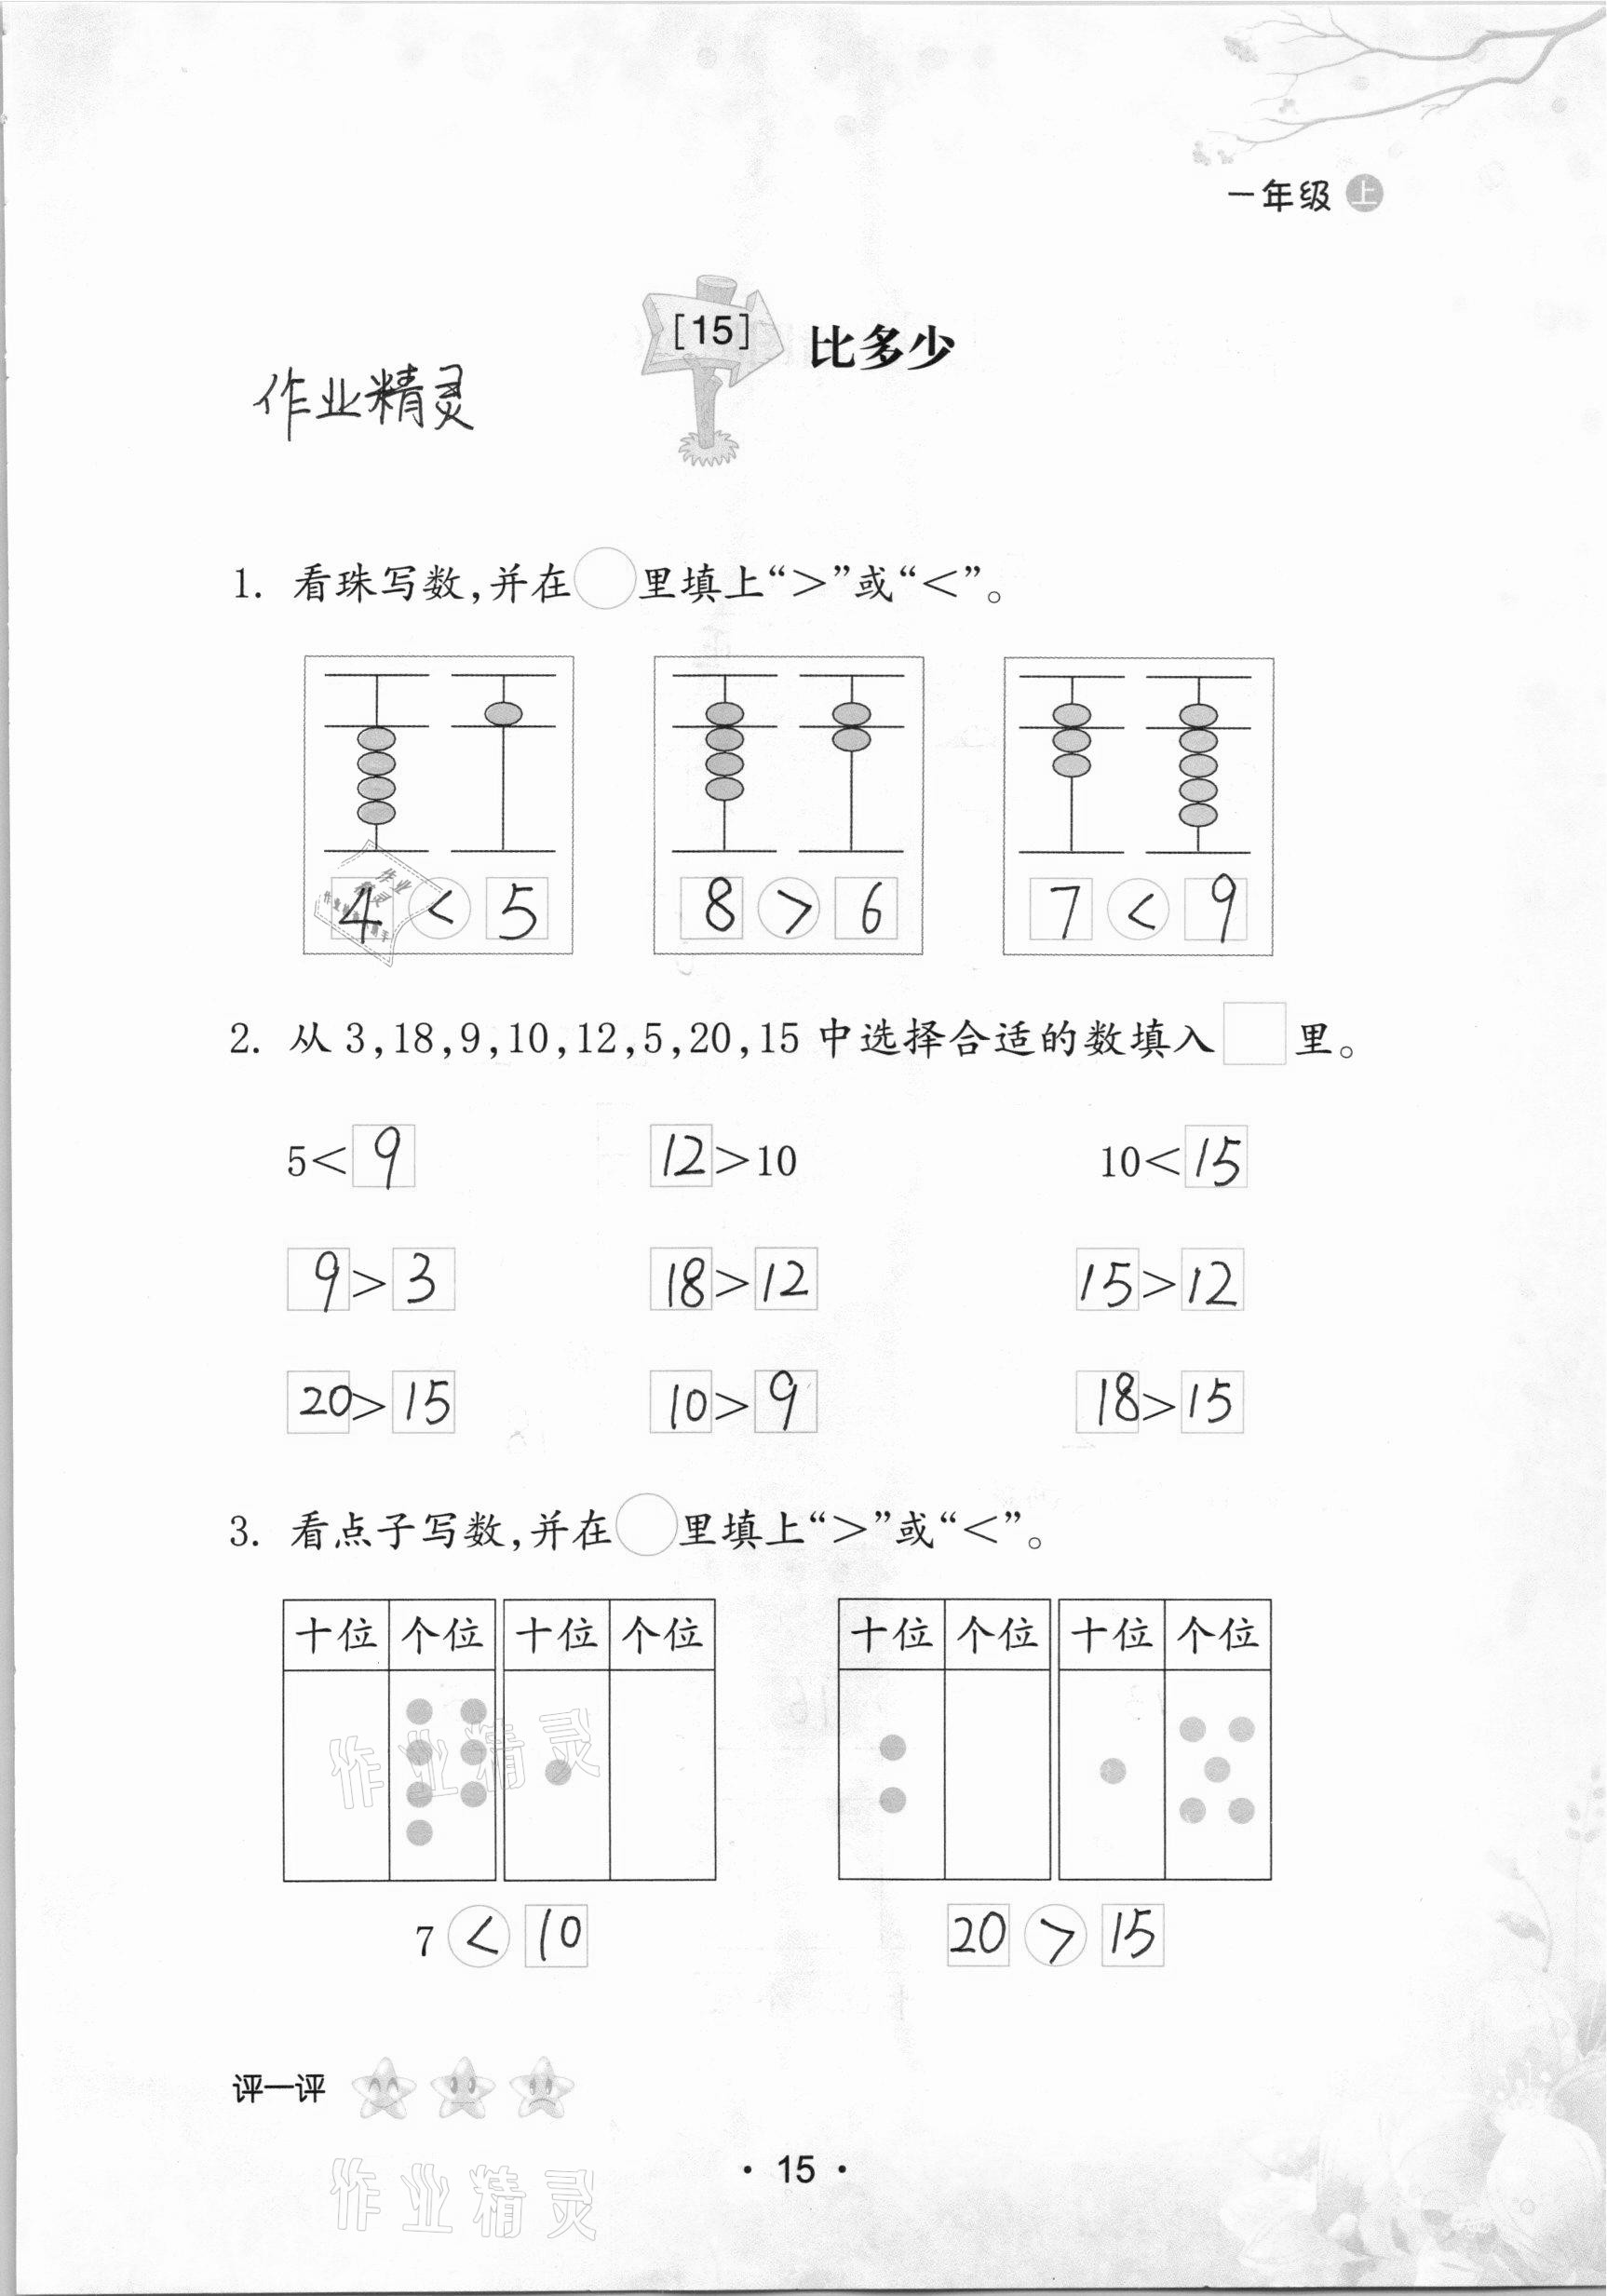 一年级 上
[15] 比多少
作业精灵
1. 看珠写数,并在○里填上“>”或“<”。
4 < 5 8 > 6 7 < 9
2. 从 3,18,9,10,12,5,20,15 中选择合适的数填入□里。
5< 9 12 >10 10< 15
9 > 3 18 > 12 15 > 12
20 > 15 10 > 9 18 > 15
3. 看点子写数,并在○里填上“>”或“<”。
十位 个位 十位 个位 十位 个位 十位 个位
作业精灵
7 < 10 20 > 15
评一评
作业精灵
· 15 ·